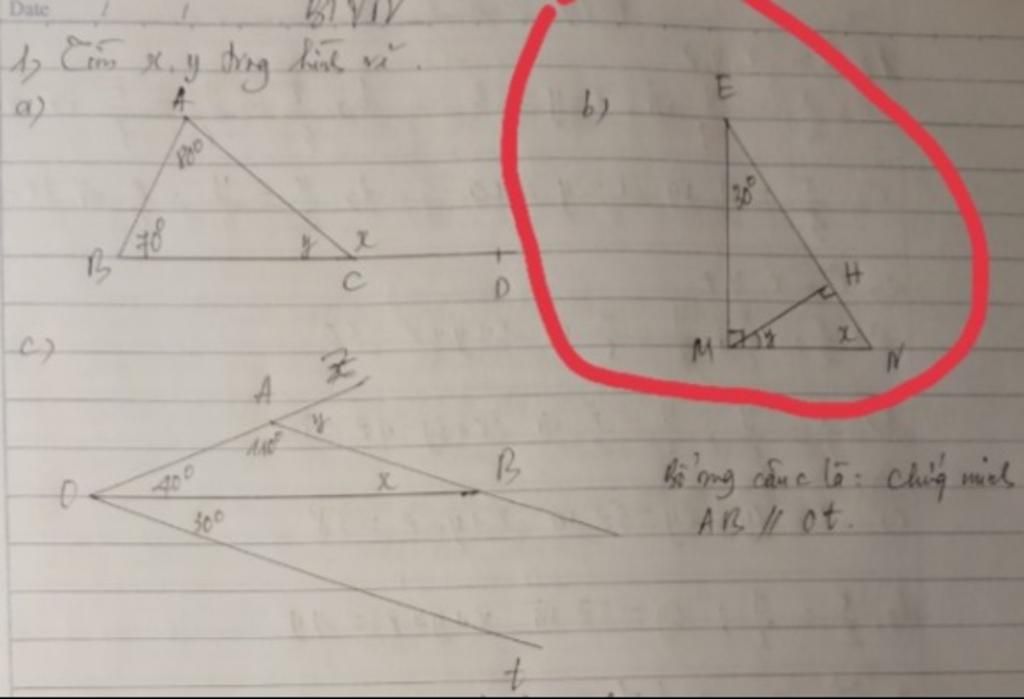 Date / /
BTVN
1, Tìm x, y trong hình vẽ.
a)
A
80°
B
70°
y
x
C
D
b)
E
30°
H
M
y
x
N
c)
A
z
110°
y
O
40°
x
B
30°
t
Bổ sung câu c là: chứng minh
AB // Ot.